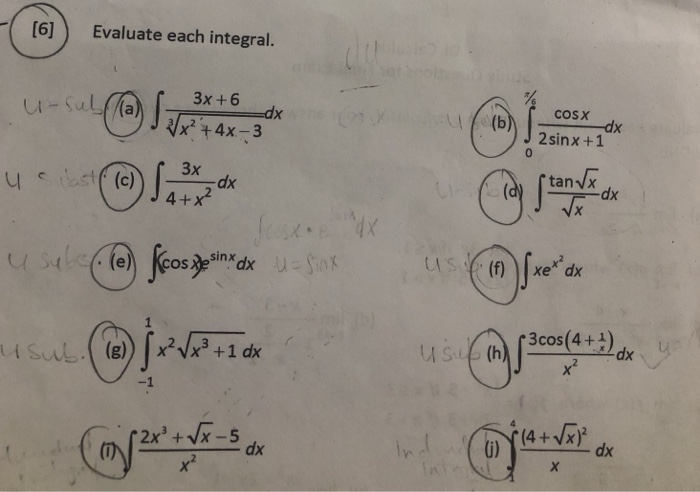 [6] Evaluate each integral.
u-sub (a) ∫ (3x+6)/∛(x²+4x−3) dx
(b) ∫₀^(π/6) cosx/(2sinx+1) dx
u subst (c) ∫ 3x/(4+x²) dx
(d) ∫ tan√x/√x dx
∫cosx·e^sinx dx
u subs. (e) ∫(cosx)e^sinx dx u=sinx
u sub. (f) ∫xe^x² dx
u sub. (g) ∫₋₁¹ x²√(x³+1) dx
u sub (h) ∫ 3cos(4+1/x)/x² dx
(i) ∫ (2x³+√x−5)/x² dx
(j) ∫₁⁴ (4+√x)²/x dx